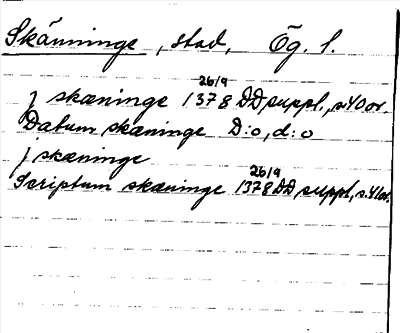 Skänninge, stad, Ög. l.
j skæninge 26/9 1378 DD suppl., s. 40 or.
Datum skæninge D:o, d:o
j skæninge
Scriptum skæninge 26/9 1378 DD suppl., s. 41 or.